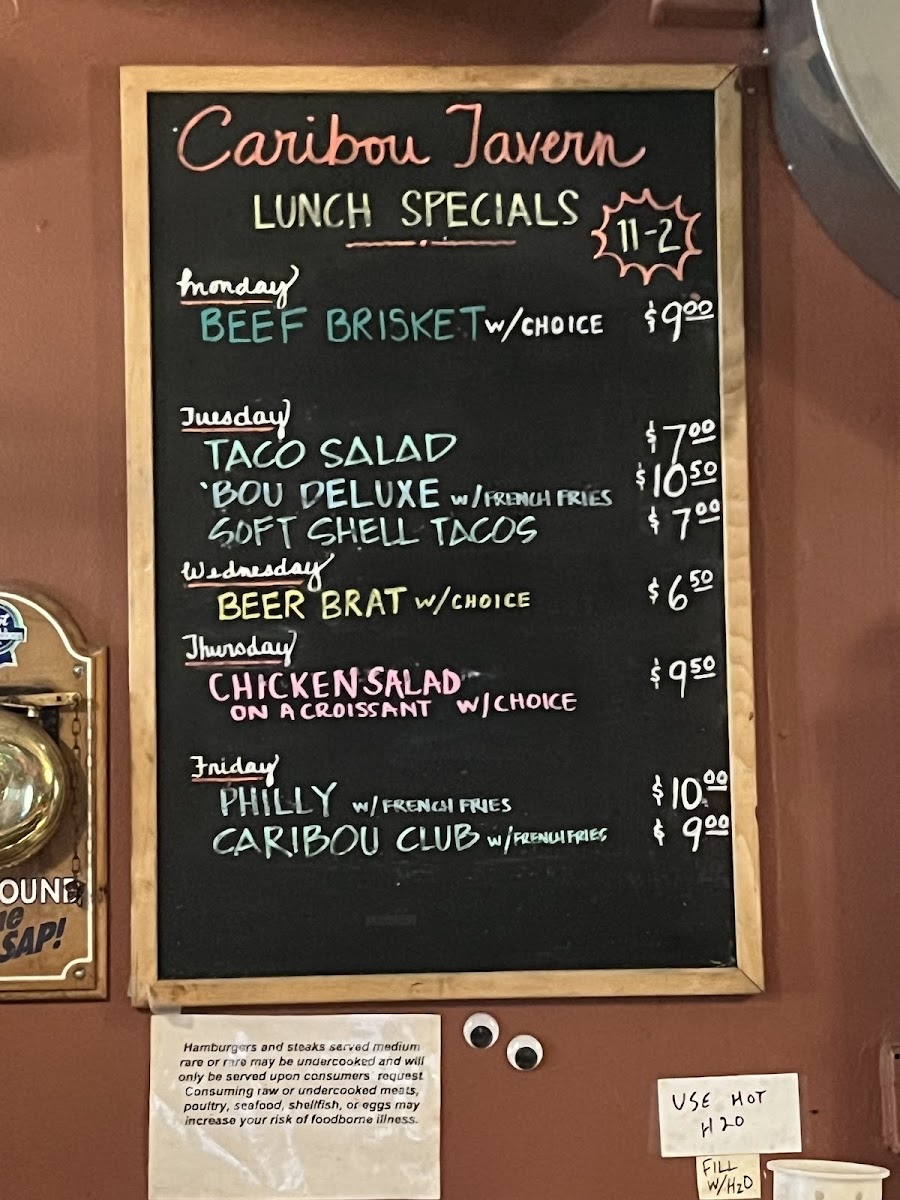 Caribou Tavern
LUNCH SPECIALS
11-2
Monday
BEEF BRISKET w/CHOICE $9.00
Tuesday
TACO SALAD $7.00
'BOU DELUXE w/FRENCH FRIES $10.50
SOFT SHELL TACOS $7.00
Wednesday
BEER BRAT w/CHOICE $6.50
Thursday
CHICKEN SALAD $9.50
ON A CROISSANT w/CHOICE
Friday
PHILLY w/FRENCH FRIES $10.00
CARIBOU CLUB w/FRENCH FRIES $9.00
SAP!
Hamburgers and steaks served medium
rare or rare may be undercooked and will
only be served upon consumers' request
Consuming raw or undercooked meats,
poultry, seafood, shellfish, or eggs may
increase your risk of foodborne illness.
USE HOT
H20
FILL
W/H2O